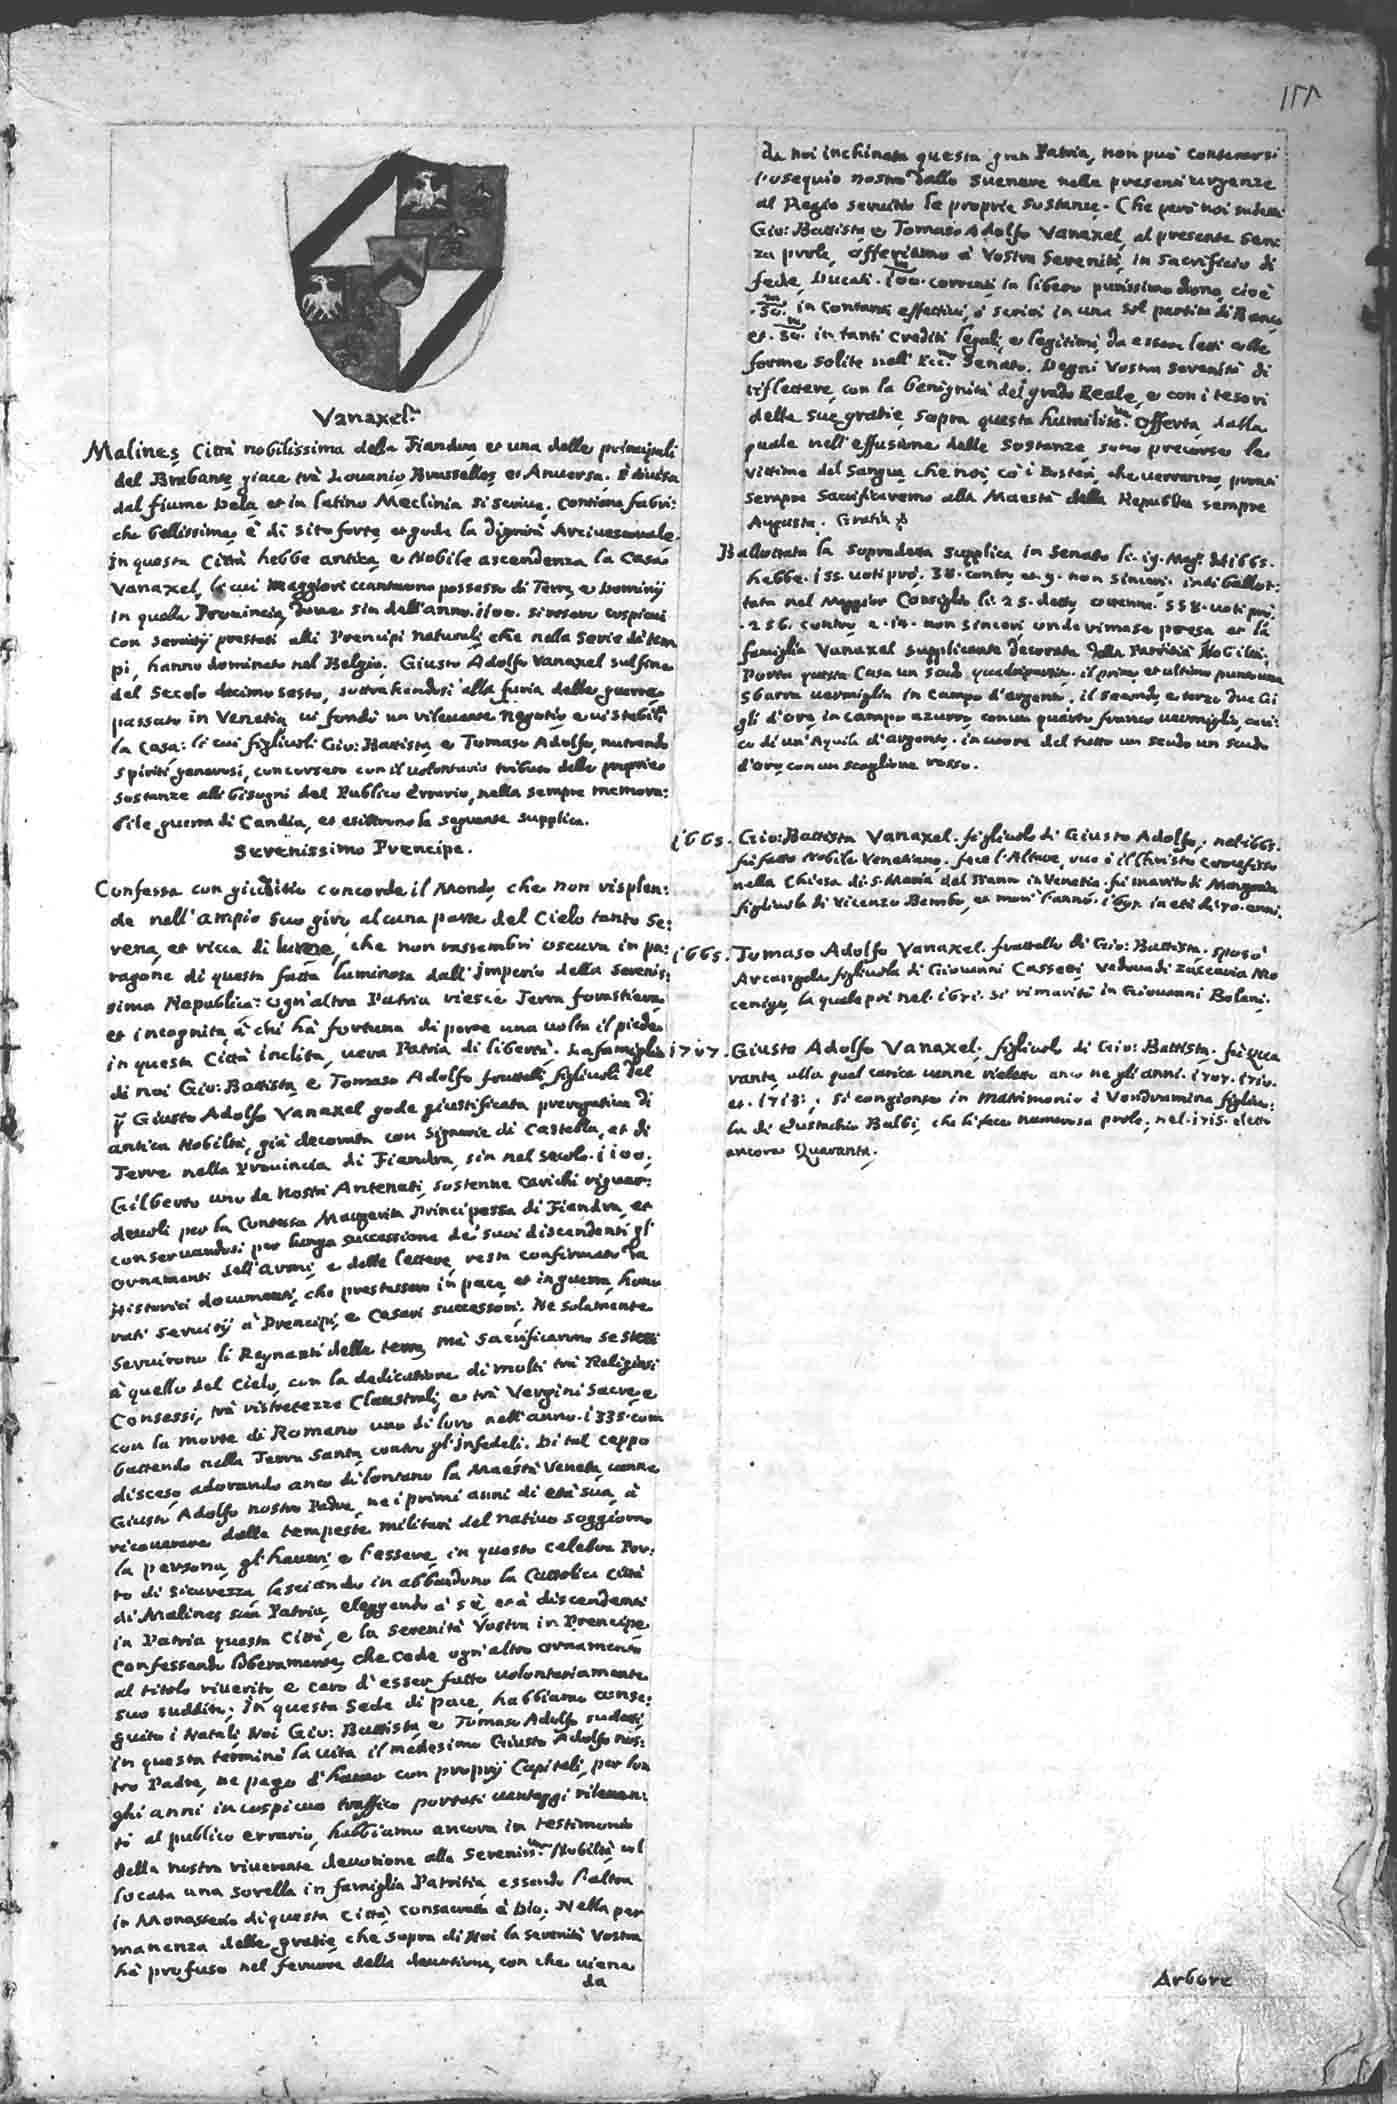 Vanaxel.
Malines Città nobilissima della Fiandra et una delle principali
del Brabante giace trà Lovanio Brusselles et Anversa. È divisa
dal fiume Dela, et in latino Meclinia si scrive. Contiene fabri:
che bellissime, è di sito forte, et gode la dignità Arcivescovale.
In questa Città hebbe antica, e Nobile ascendenza la Casa
Vanaxel, li cui Maggiori vantarono possesso di Terre, e Dominij
in quella Provincia, dove sin dell'anno. 1100. si resero cospicui
con servitij prestati alli Prencipi naturali, che nella serie di tem
pi, hanno dominato nel Belgio. Giusto Adolfo Vanaxel sul fine
del Secolo decimo sesto, sottrahendosi alla furia delle guerre,
passato in Venetia, vi fondò un rilevante Negotio, e vi stabilì
la Casa: li cui figliuoli Gio: Battista, e Tomaso Adolfo, nutrendo
spiriti generosi, concorsero con il volontario tributo delle proprie
sostanze alli bisogni del Publico Errario, nella sempre memora:
bile guerra di Candia, et esibirono la seguente supplica.
Serenissimo Prencipe.
Confessa con giuditio concorde il Mondo, che non risplen:
de nell'ampio suo giro alcuna parte del Cielo tanto se:
rena, et ricca di lume, che non rassembri oscura in pa:
ragone di questa fatta luminosa dall'imperio della Serenis:
sima Republica: ogn'altra Patria riesce Terra forastiera,
et incognita à chi hà fortuna di porre una volta il piede
in questa Città inclita, vera Patria di libertà. La famiglia
di noi Gio: Battista, e Tomaso Adolfo fratelli figliuoli del
Giusto Adolfo Vanaxel gode giustificata prerogativa di
antica Nobiltà, già decorata con Signorie di Castella, et di
Terre nella Provincia di Fiandra, sin nel secolo. 1100.
Gilberto uno de nostri Antenati, sostenne carichi riguar:
devoli per la Contessa Margerita Principessa di Fiandra, et
conservandosi per lunga successione de suoi discendenti gl'
ornamenti dell'armi, e delle lettere, resta confirmato da
Historici documenti, che prestassero in pace, et in guerra, hono
rati servitij à Prencipi, e Cesari successori. Ne solamente
servirono li Regnanti della terra, mà sacrificarono se stessi
à quello del Cielo, con la dedicatione di molti trà Religiosi
Consessi, trà ristretezze Claustrali, e trà Vergini Sacre, e
con la morte di Romano uno di loro nell'anno. 1335. com
battendo nella Terra Santa, contro gl'infedeli. Di tal ceppo
disceso, adorando anco di lontano la Maestà Veneta, venne
Giusto Adolfo nostro Padre, ne i primi anni di età sua, à
ricovrare dalle tempeste militari del nativo soggiorno
la persona, gl'haveri, e l'essere, in questo celebre Por:
to di sicurezza, lasciando in abbandono la Cattolica Città
di Malines sua Patria, eleggendo à sè, et à discendenti
in Patria questa Città, e la Serenità Vostra in Prencipe
Confessando liberamente, che cede ogn'altro ornamento
al titolo riverito, e caro d'esser fatto volontariamente
suo suddito. In questa Sede di pace, habbiamo conse:
guito i Natali Noi Gio: Battista, e Tomaso Adolfo sudetti,
in questa terminò la vita il medesimo Giusto Adolfo nos:
tro Padre, ne pago d'haver con proprij Capitali, per lun
ghi anni in cospicuo traffico portati vantaggi rilevan:
ti al publico errario, habbiamo ancora in testimonio
della nostra riverente devotione alla Sereniss.ma Nobiltà, col
locata una sorella in famiglia Patritia, essendo l'altra
in Monasterio di questa Città consacrata à Dio. Nella per
manenza delle gratie, che sopra di Noi la Serenità Vostra
hà profuso nel fervore della devotione, con che viene
da
da noi inchinata questa gran Patria, non può contenersi
l'osequio nostro dallo svenare nelle presenti urgenze
al Regio servitio le proprie sostanze. Che però noi sudetti
Gio: Battista, e Tomaso Adolfo Vanaxel, al presente sen:
za prole, offeriamo à Vostra Serenità, in sacrificio di
fede, Ducati. 100. correnti, in libero purissimo dono, cioè
.50. in contanti effettivi, ò scritti in una sol partita di Banco,
et. 50. in tanti crediti legali, e legitimi, da esser letti colle
forme solite nell'Ecc.mo Senato. Degni Vostra Serenità di
riflettere, con la benignità del grado Reale, e con i tesori
delle sue gratie, sopra questa humiliss.ma offerta, dalla
quale nell'effusione delle sostanze, sono precorse le
vittime del sangue, che noi, co' i Posteri, che verranno, pronti
sempre sacrificaremo alla Maestà della Republica sempre
Augusta. Gratia &
Ballottata la sopradetta supplica in Senato li. 19. Mag.o di 1665.
hebbe. 155. voti prò. 38. contro, et. 9. non sinceri. indi ballot:
tata nel Maggior Consiglio li. 25. detto, ottenne. 558. voti prò
.256. contro, e. 14. non sinceri onde rimase presa et la
famiglia Vanaxel supplicante decorata della Patritia Nobiltà.
Porta questa Casa un scudo quadripartito. il primo, et ultimo punto una
sbarra vermiglia in campo d'argento, il secondo, e terzo due Gi
gli d'oro in campo azurro, con un quarto franco vermiglio, cari:
co di un'Aquila d'argento. in cuore del tutto un scudo un scudo
d'oro, con un scaglione rosso.
1665. Gio: Battista Vanaxel. figliuolo di Giusto Adolfo. nel 1665.
fù fatto Nobile Venetiano. fece l'Altare, ove è il Christo Crocefisso
nella Chiesa di S. Maria del Pianto in Venetia. fù marito di Margarita
figliuola di Vicenzo Bembo, et morì l'anno. 1697. in età di. 70. anni.
1665. Tomaso Adolfo Vanaxel. fratello di Gio: Battista. sposò
Arcangela figliuola di Giovanni Cassetti, Vedova di Zaccaria Mo
cenigo, la quale poi nel. 1671. si rimaritò in Giovanni Bolani.
1707. Giusto Adolfo Vanaxel. figliuolo di Gio: Battista. fù Qua
ranta, alla qual carica venne rieletto anco ne gli anni. 1707. 1710.
et. 1713. Si congionse in matrimonio à Vendramina figliuo:
la di Eustachio Balbi, che li fece numerosa prole. nel. 1715. eletto
ancora Quaranta.
Arbore